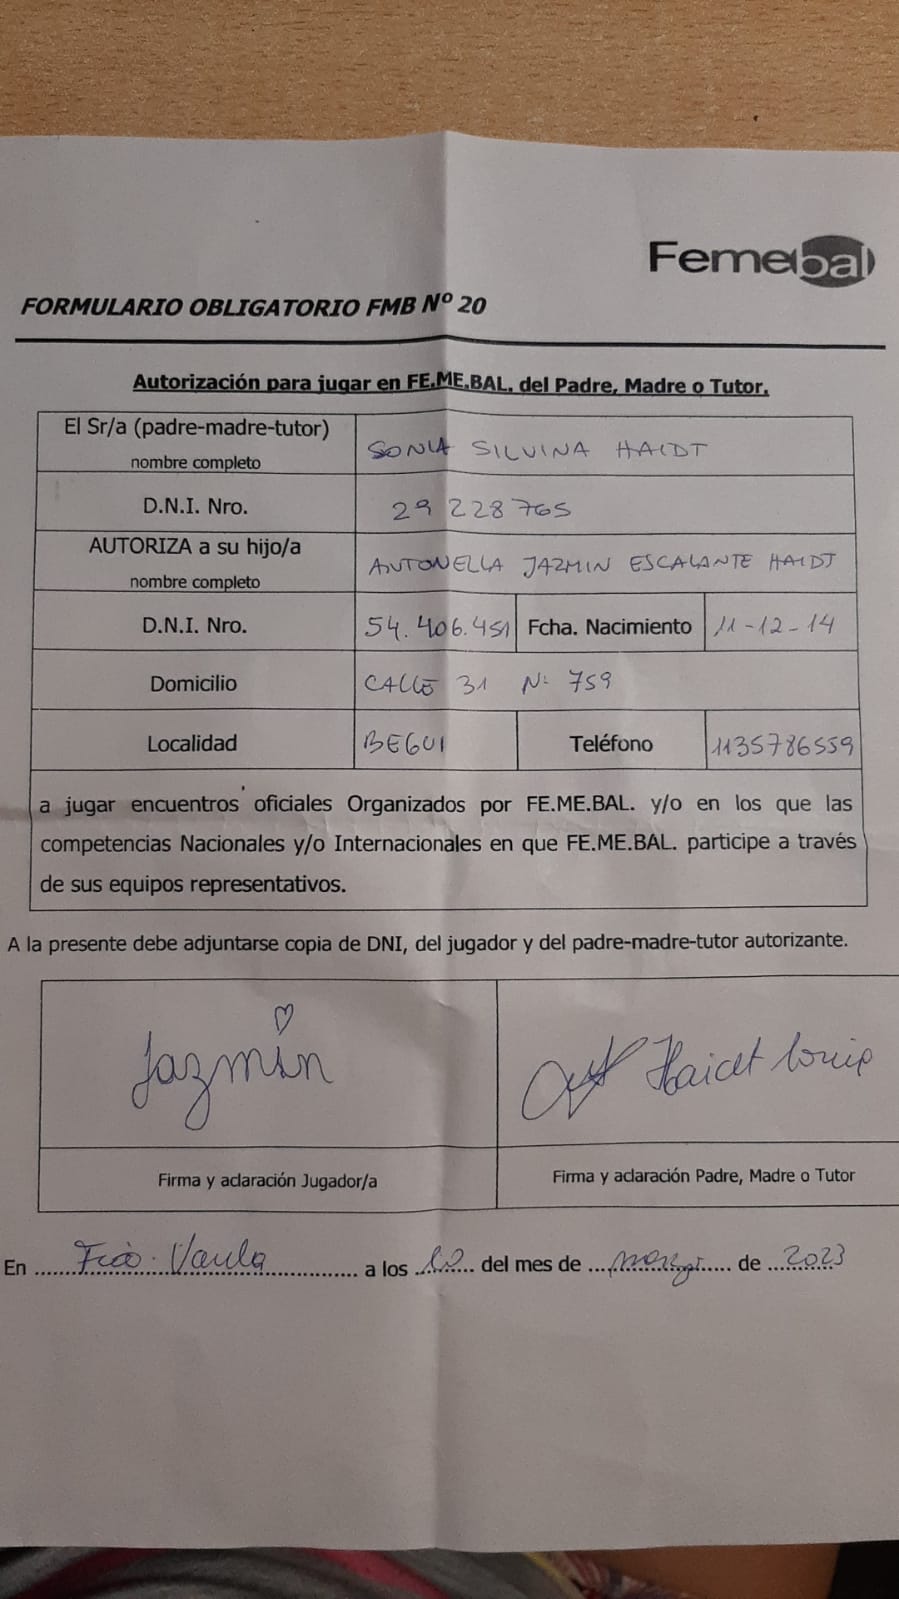 Femebal
FORMULARIO OBLIGATORIO FMB Nº 20
Autorización para jugar en FE.ME.BAL. del Padre, Madre o Tutor.
El Sr/a (padre-madre-tutor)
nombre completo
SONIA SILVINA HAIDT
D.N.I. Nro.
29 228 765
AUTORIZA a su hijo/a
nombre completo
ANTONELLA JAZMIN ESCALANTE HAIDT
D.N.I. Nro.
54.406.451
Fcha. Nacimiento
11-12-14
Domicilio
CALLE 31 Nº 759
Localidad
BEGUI
Teléfono
1135786559
a jugar encuentros oficiales Organizados por FE.ME.BAL. y/o en los que las
competencias Nacionales y/o Internacionales en que FE.ME.BAL. participe a través
de sus equipos representativos.
A la presente debe adjuntarse copia de DNI, del jugador y del padre-madre-tutor autorizante.
Jazmin
Firma y aclaración Jugador/a
Firma y aclaración Padre, Madre o Tutor
En Fcio. Varela a los del mes de de 2023